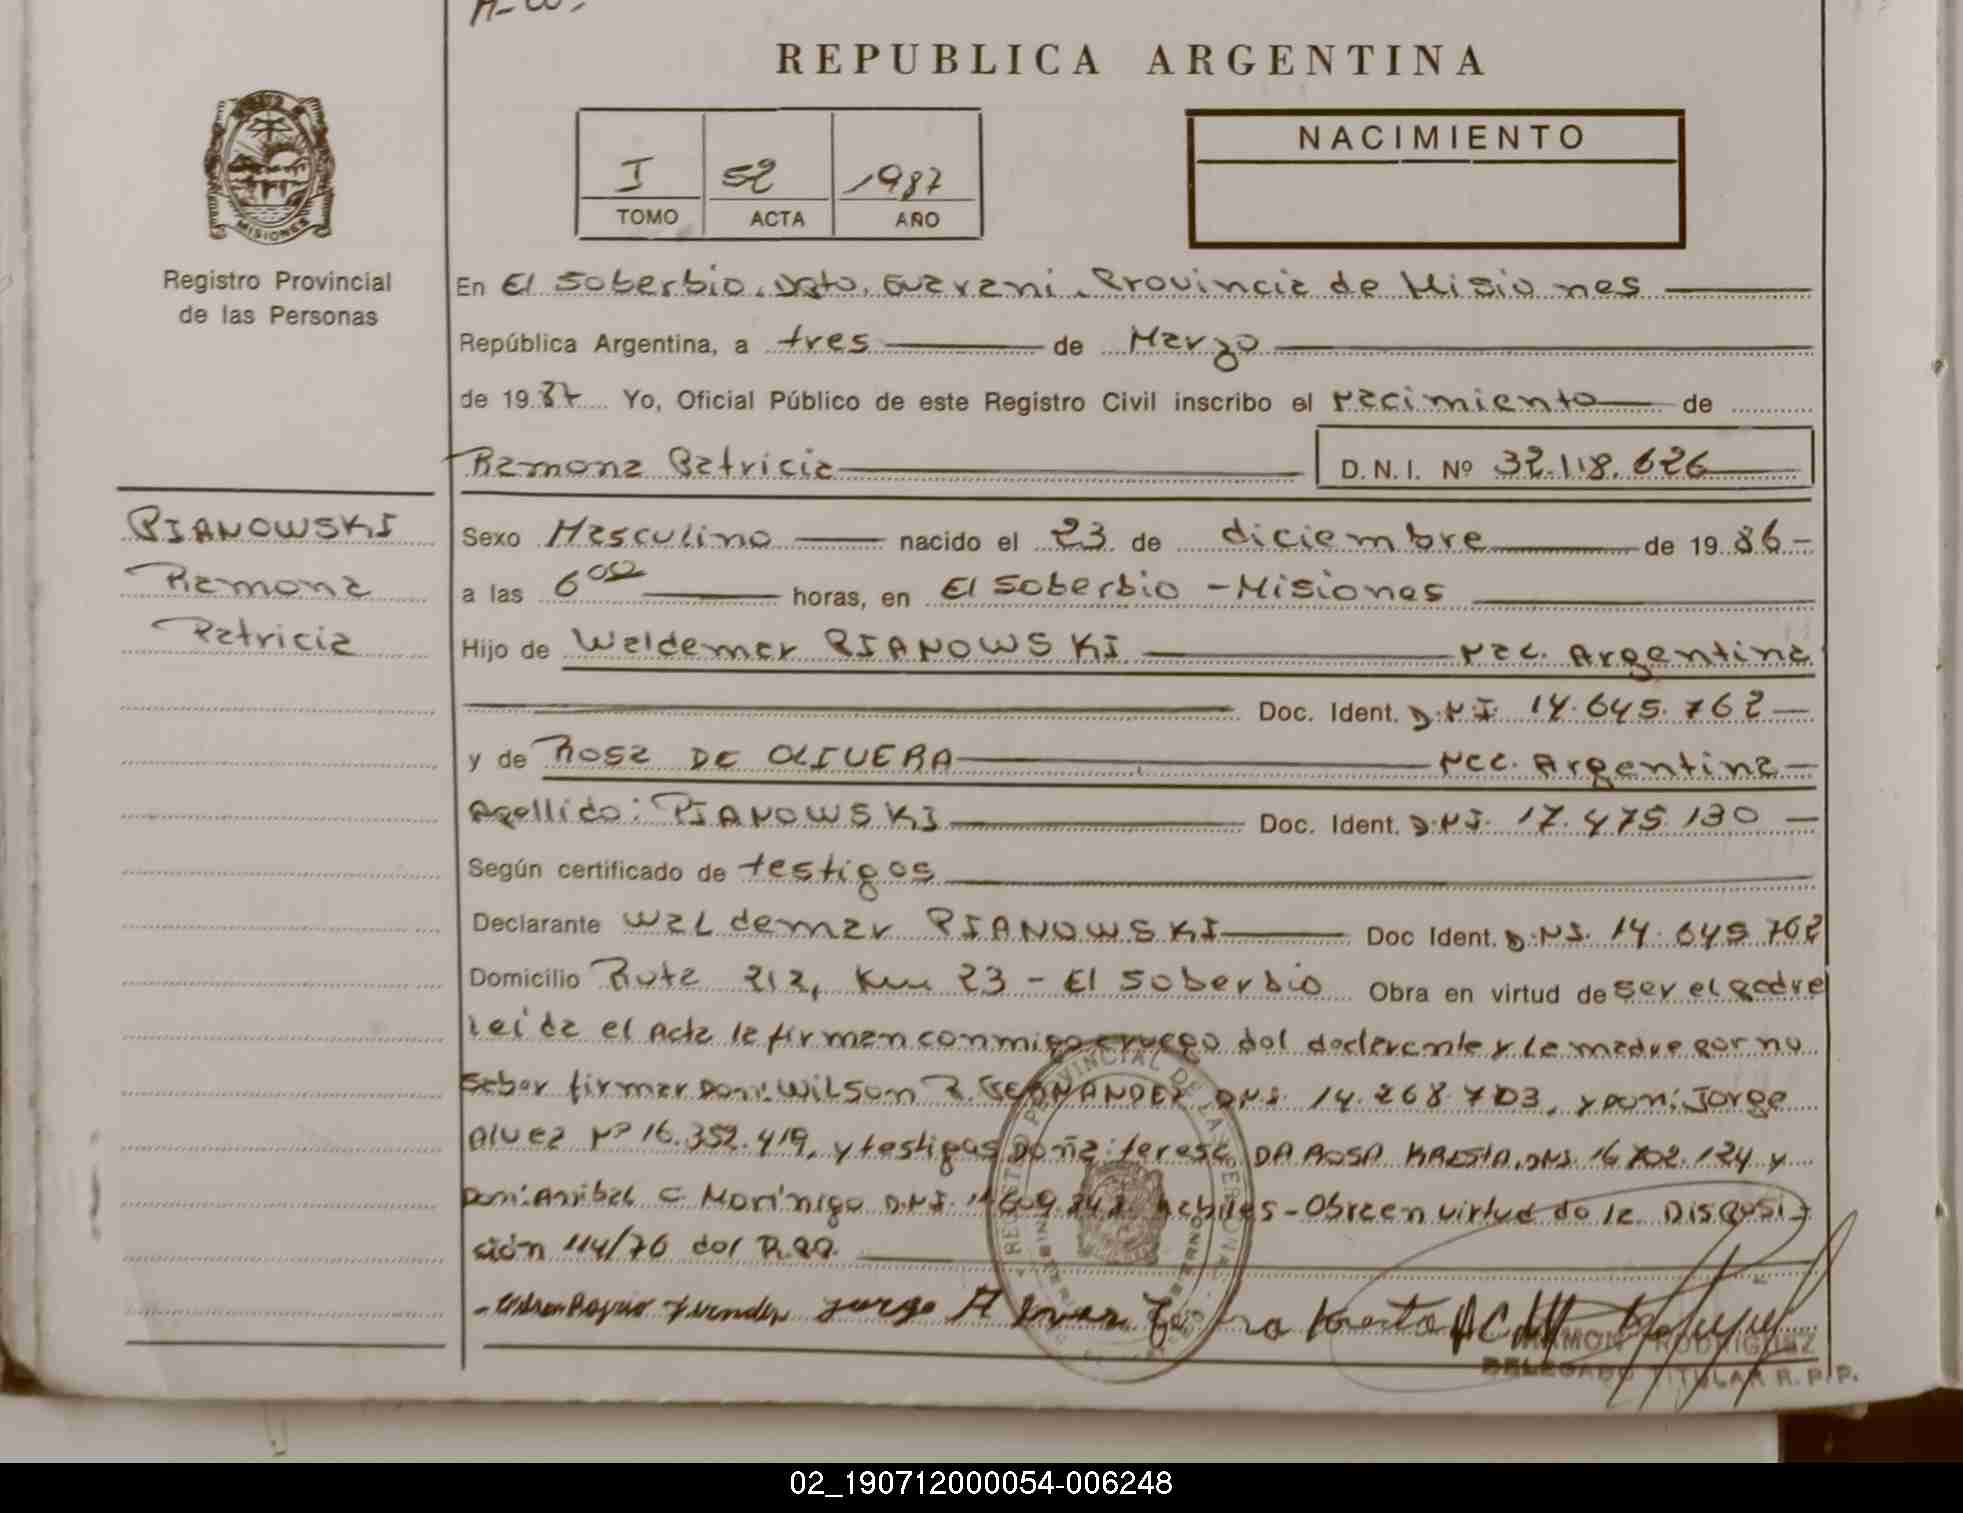 REPUBLICA ARGENTINA
I 52 1987
TOMO ACTA AÑO
NACIMIENTO
MISIONES
Registro Provincial
de las Personas
En El Soberbio, Dpto. Guarani, Provincia de Misiones
República Argentina, a tres de Marzo
de 1987 Yo, Oficial Público de este Registro Civil inscribo el nacimiento de
Ramona Patricia D.N.I. Nº 32.118.626
PIANOWSKI
Ramona
Patricia
Sexo Masculino nacido el 23 de diciembre de 1986
a las 6 00 horas, en El Soberbio - Misiones
Hijo de Waldemar PIANOWSKI nac. Argentina
Doc. Ident. D.N.I. 14.645.762
y de Rosa DE OLIVERA nac. Argentina
Apellido: PIANOWSKI Doc. Ident. D.N.I. 17.475.130
Según certificado de testigos
Declarante Waldemar PIANOWSKI Doc Ident. D.N.I. 14.645.762
Domicilio Ruta 212, Km 23 - El Soberbio Obra en virtud de ser el padre
leída el Acta la firman conmigo a ruego del declarante y la madre por no
saber firmar Don: Wilson R. FERNANDEZ D.N.I. 14.268.703, y Don: Jorge
Alvez Nº 16.352.419, y testigos Doña: teresa DA ROSA KRESTA, DNI. 16.702.124 y
Don: Anibal C Morínigo D.N.I. habiles - Obra en virtud de la Disposi-
sión 114/76 del R.PP.
RAMON RODRIGUEZ
DELEGADO TITULAR R.P.P.
02_190712000054-006248